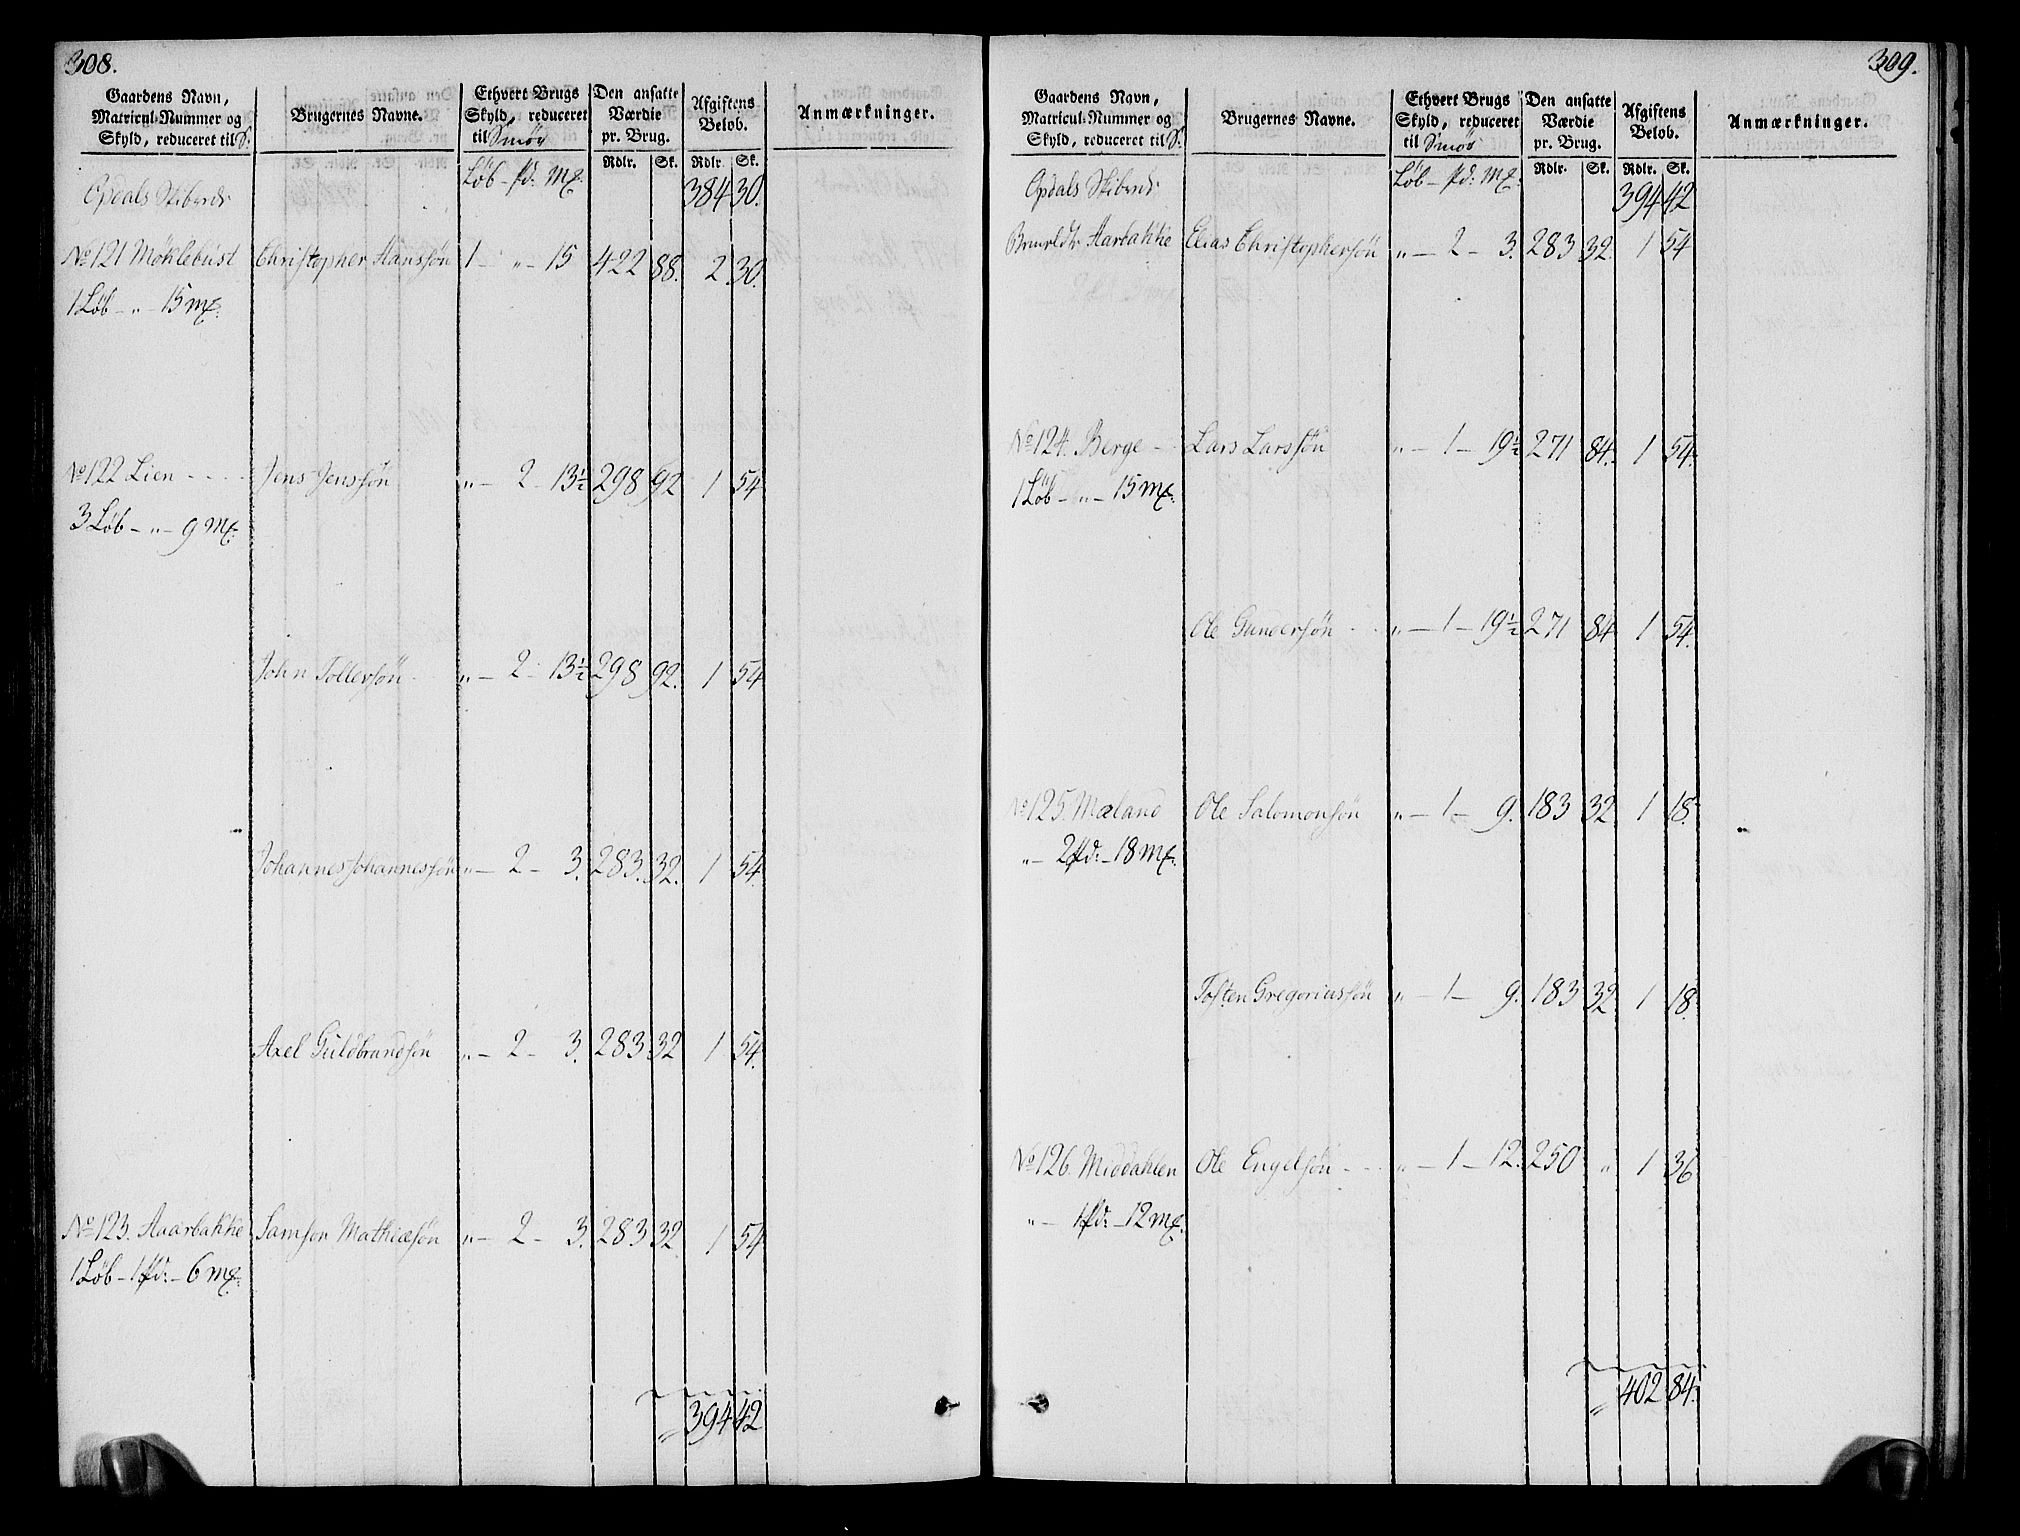 308.
Gaardens Navn, Matricul-Nummer og Skyld, reduceret til S. | Brugernes Navne. | Ethvert Brugs Skyld, reduceret til Smör | Den ansatte Værdie pr. Brug. | Afgiftens Beløb. | Anmærkninger.
Løb - pd: Mk: | Rdlr. | Sk. | Rdlr. | Sk.
Opdals Skibrede | 384 | 30.
No 121 Möklebust | Christopher Hanssön | 1 - „ - 15 | 422 | 88. | 2 | 30.
1 Løb - „ - 15 Mk:
No 122 Lien | Jens Jenssön | „ - 2 - 13½ | 298 | 92 | 1 | 54
3 Løb - „ - 9 Mk:
John Tollersön | „ - 2 - 13½ | 298 | 92. | 1 | 54
Johannes Johannessön | „ - 2 - 3. | 283. | 32. | 1 | 54.
Axel Guldbrandsön | „ - 2 - 3. | 283 | 32 | 1 | 54.
No 123. Aaarbakke | Samson Mathiæsön | „ - 2 - 3. | 283 | 32. | 1 | 54
1 Løb - 1 pd: - 6 Mk:
„ 394 | 42
309.
Gaardens Navn, Matricul-Nummer og Skyld, reduceret til S. | Brugernes Navne. | Ethvert Brugs Skyld, reduceret til Smör | Den ansatte Værdie pr. Brug. | Afgiftens Beløb. | Anmærkninger.
Løb - pd: Mk: | Rdlr. | Sk. | Rdlr. | Sk.
Opdals Skibrede | 394 | 42
Aarbakke | Elias Christophersön | „ - 2 - 3. | 283 | 32. | 1 | 54
No 124. Berge | Lars Larssön | „ - 1 - 19½ | 271 | 84. | 1 | 54.
1 Løb - „ - 15 Mk:
Ole Gundersön | „ - 1 - 19½ | 271 | 84 | 1 | 54.
No 125. Mæland | Ole Salomonsön | „ - 1 - 9. | 183 | 32 | 1 | 18.
„ - 2 pd: - 18 Mk:
Tosten Gregoriussön | „ - 1 - 9. | 183 | 32. | 1 | 18.
No 126. Middahlen | Ole Engelsön | „ - 1 - 12. | 250 | „ | 1 | 36
„ - 1 pd: - 12 Mk:
„ 402 | 84.